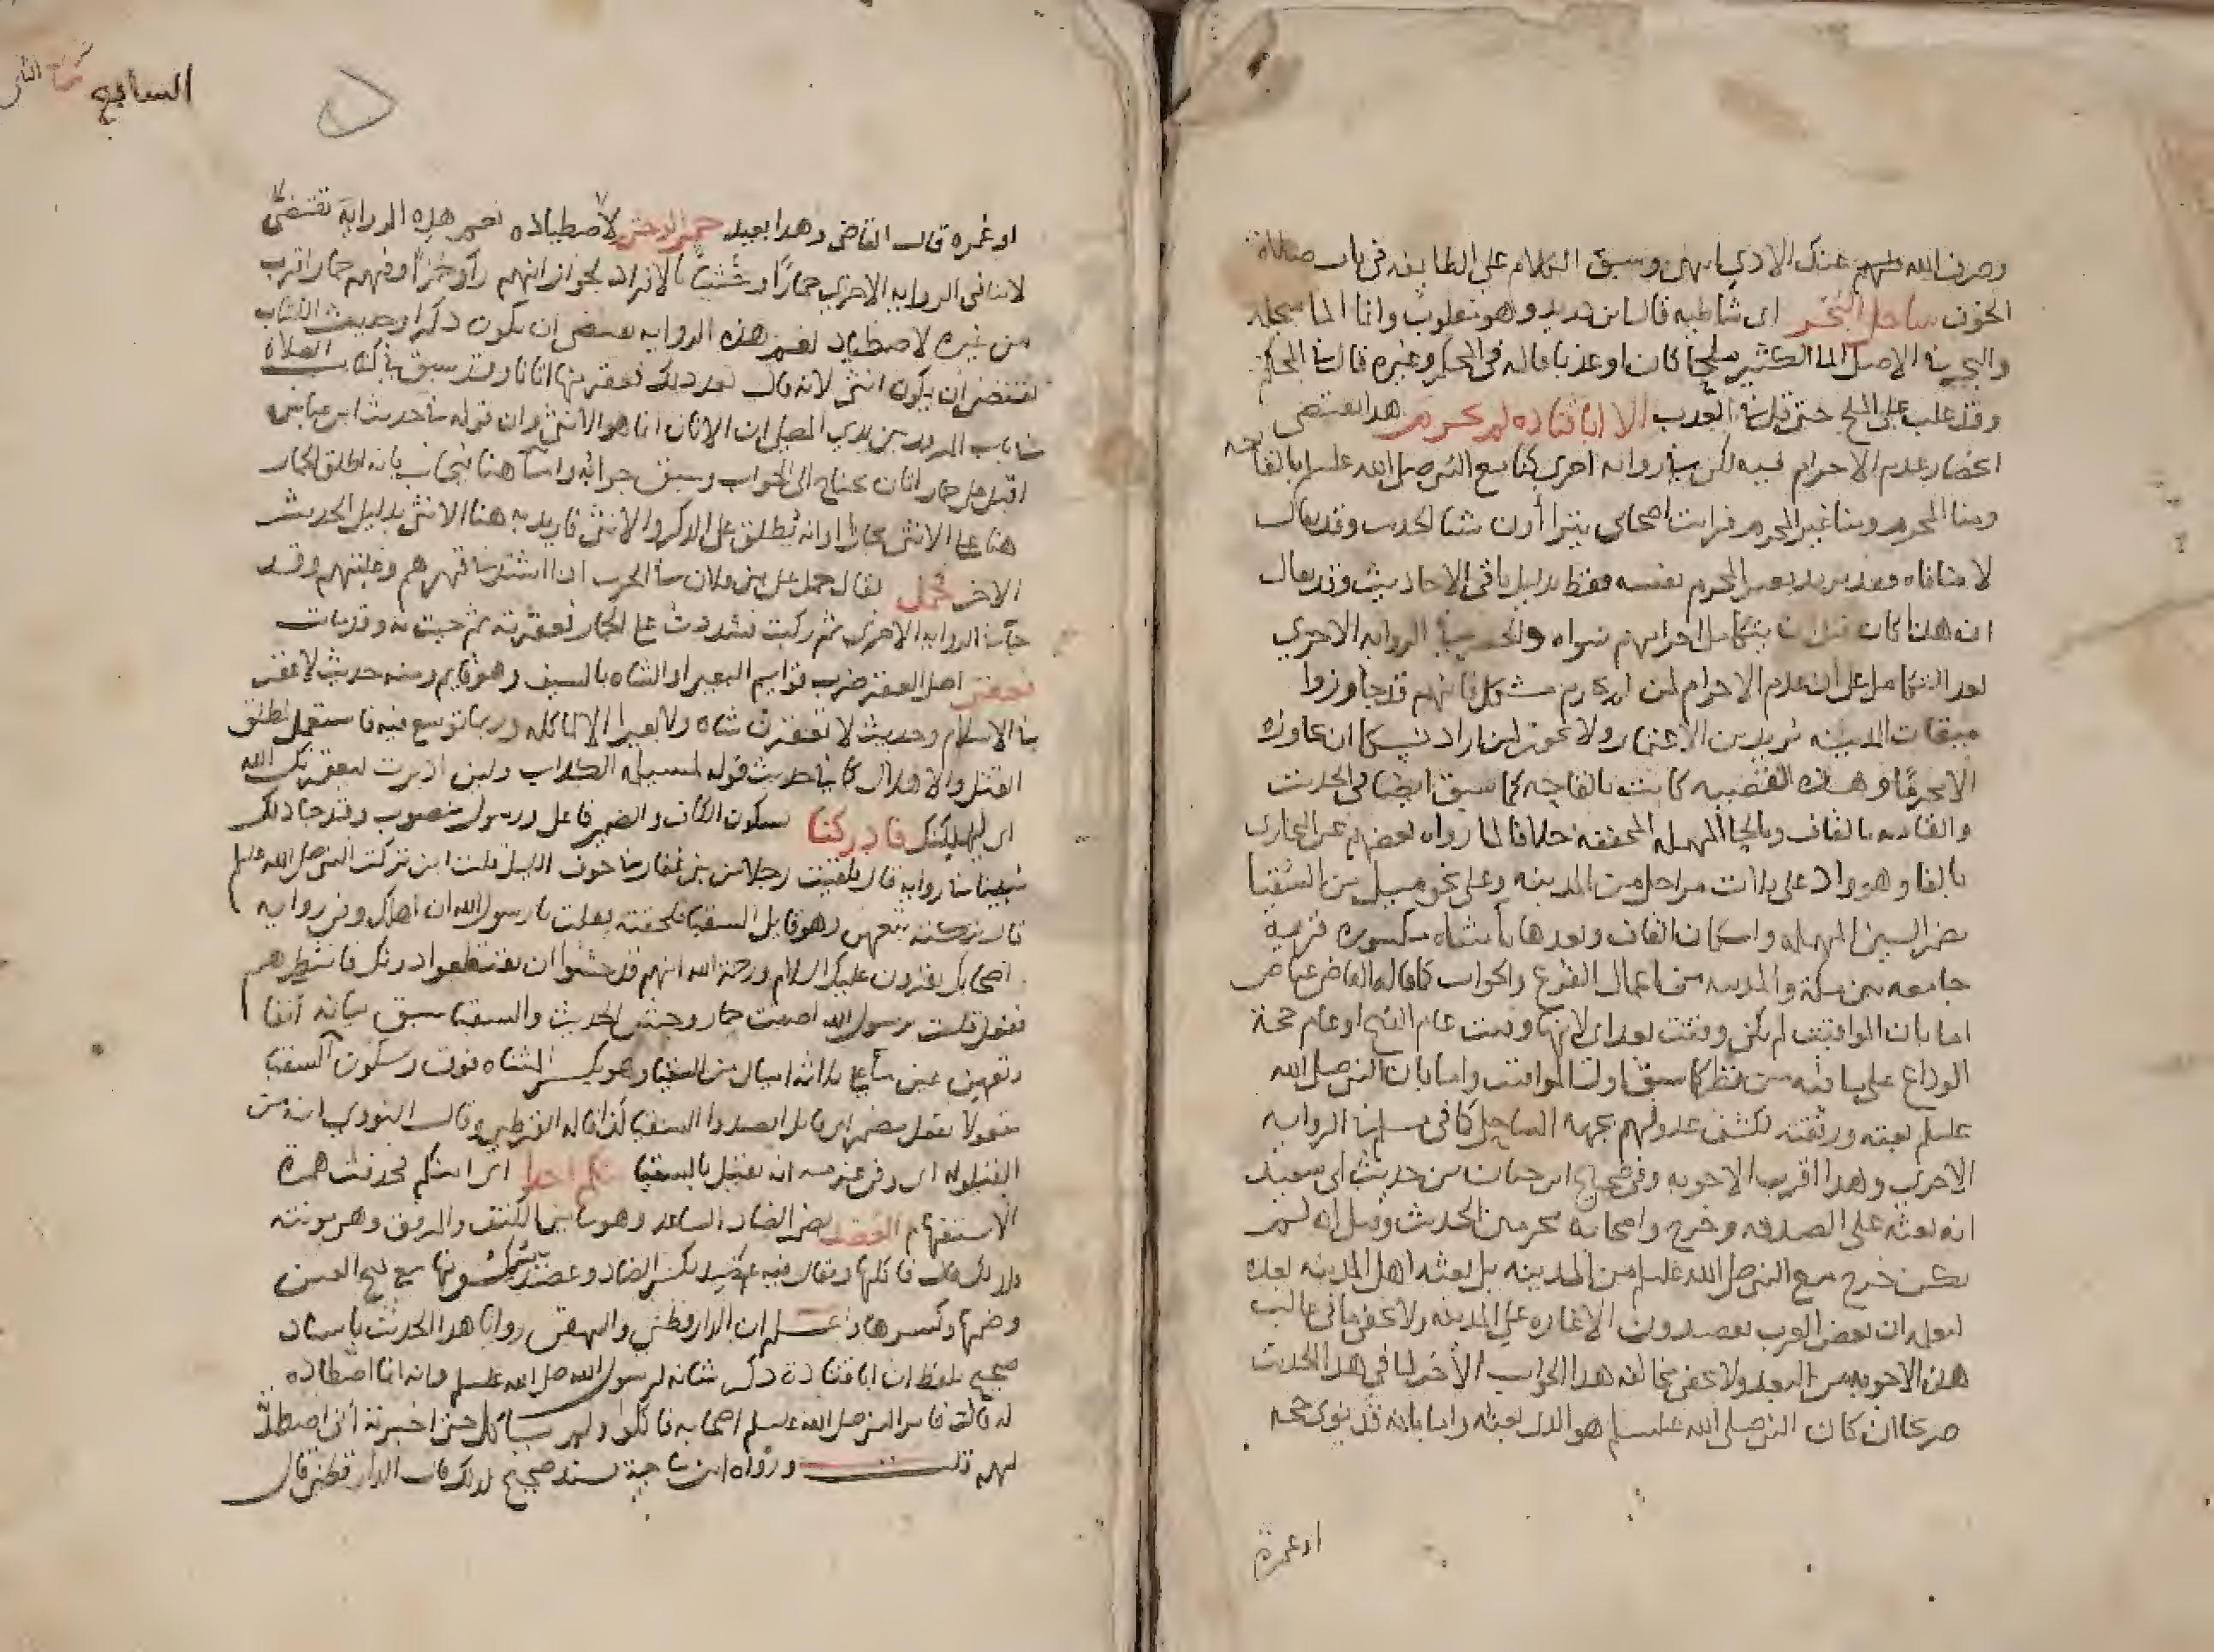 وصرف الله عنك الاذي اينهن وسبق الكلام على الطايفه في باب صلاة
الخوف ساحل البحر اى شاطيه قال ابن دريد وهو مقلوب وانما الما سحله
والبحر في الاصل الما الكثير ملحا كان او عذبا قاله في المحكم وغيره قال في المحكم
وقد غلب على الملح حتى قل في العذب الا ابا قتاده لم يحرم هذا يقتضى
انحصار عدم الاحرام فيه لكن في روايه اخرى كنا مع النبي صلى الله عليه وسلم بالقاحه
ومنا المحرم ومنا غير المحرم فرايت اصحابى يتراأون شيا الحديث وقد يقال
لا منافاه فقد يريد بغير المحرم نفسه فقط بدليل باقى الاحاديث وقد يقال
ان هذا كان قبل ان يتكامل احرامهم سواه والحصر في الروايه الاخرى
بعد التكامل على ان عدم الاحرام لمن لم يحرم مشكل فانهم قد جاوزوا
ميقات المدينه مريدين الاعتمار ولا يجوز لمن اراد نسكا ان يجاوزه
الا محرما وهذه القضيه كانت بالقاحه كما سبق ايضا فى الحديث
والقاحه بالقاف وبالحا المهمله المخففه خلافا لما رواه بعضهم عن البخارى
بالفا وهو واد على ثلاث مراحل من المدينه وعلى نحو ميل من السقيا
بضم السين المهمله واسكان القاف وبعدها يا مثناه مكسوره قريه
جامعه بين مكة والمدينه من اعمال الفرع والجواب كما قاله القاضى عياض
اما بان المواقيت لم تكن وقتت بعد اى لانها وقتت عام الفتح او عام حجة
الوداع على ما فيه من نظر كما سبق اول المواقيت واما بان النبي صلى الله
عليه وسلم بعثه ورفقته لكشف عدو لهم بجهة الساحل كما فى مسلم في الروايه
الاخرى وهذا اقرب الاجوبه وفى صحيح ابن حبان من حديث ابى سعيد
انه بعثه على الصدقه وخرج واصحابه محرمين الحديث وقيل انه لم
يكن خرج مع النبي صلى الله عليه وسلم من المدينه بل بعثه اهل المدينه بعده
ليعلمه ان بعض العرب يقصدون الاغاره على المدينه ولا يخفى ما فى غالب
هذه الاجوبه من البعد ولا يخفى مخالفة هذا الجواب الاخر لما فى هذا الحديث
صريحا ان كان النبي صلى الله عليه وسلم هو الذى بعثه واما بانه قد ينوى حجه
او عمرة
السابع
او عمره قال القاضى وهذا بعيد حمر الوحش لاصطياده نعم هذه الروايه تقتضى
لا تنافى الروايه الاخرى حمارا وحشيا بالافراد لجواز انهم رأو حمرا وفيهم حمار اقرب
من غيره لاصطياد نعم هذه الروايه تقتضى ان يكون ذكرا وحديث الكتاب
يقتضى ان يكون انثى لانه قال بعد ذلك فعقر منها اتانا وقد سبق في كتاب الصلاة
في باب المرور بين يدي المصلى ان الاتان انما هو الانثى وان قوله في حديث ابن عباس
اقبلت على حمار اتان يحتاج الى الجواب وسبق جوابه واما هنا فيجاب بانه اطلق الحمار
هنا على الانثى مجازا او انه يطلق على الذكر والانثى فاريد به هنا الانثى بدليل الحديث
الاخر فحمل يقال حمل على بنى فلان في الحرب اذا اشتد في قهرهم وغلبتهم وقد
جا في الروايه الاخرى ثم ركبت فشددت على الحمار فعقرته ثم جيت به وقد مات
فعقر اصل العقر ضرب قوايم البعير او الشاه بالسيف وهو قايم ومنه حديث لا عقر
في الاسلام وحديث لا تعقرن شاه ولا بعيرا الا لماكله وربما توسع فيه فاستعمل لمطلق
القتل والاهلاك كما في حديث قوله لمسيلمه الكذاب ولين ادبرت ليعقرنك الله
اى ليهلكنك فادركنا بسكون الكاف والضمير فاعل ورسول منصوب وقد جا ذلك
مبينا في روايه قال فلقيت رجلا من بنى غفار في جوف الليل فقلت اين تركت النبي صلى الله عليه وسلم
قال تركته بتعهن وهو قايل السقيا فلحقته فقلت يا رسول الله ان اهلك وفى روايه
اصحابك يقرون عليك السلام ورحمة الله انهم قد خشوا ان يقتطعوا دونك فانتظرهم
ففعل قلت يا رسول الله اصبت حمار وحش الحديث والسقيا سبق بيانه انفا
وتعهن عين ما على ثلاثه اميال من السقيا وهو بكسر المثناه فوق وسكون السقيا
مفعولا بفعل مضمر اى قايل اقصدوا السقيا كذا قاله القرطبي وقال النووي انه من
القيلوله اى وفى عزمه ان يقيل بالسقيا منكم احد اى امنكم فحذفت همزة
الاستفهام العضد بضم الضاد الساعد وهو ما بين الكتف والمرفق وهى مونثه
ولذلك قال فاكلها ويقال فيه عضد بكسر الضاد وعضد بسكونها مع فتح العين
وضمها وكسرها واعلم ان الدارقطنى والبيهقى رويا هذا الحديث باسناد
صحيح بلفظ ان ابا قتادة ذكر شانه لرسول الله صلى الله عليه وسلم وانه انما اصطاده
له قال فامر النبي صلى الله عليه وسلم اصحابه فاكلوا ولم ياكل حين اخبرته انى اصطدته
لهم قلت ورواه ابن ماجة بسند صحيح لذلك قال الدارقطنى قال